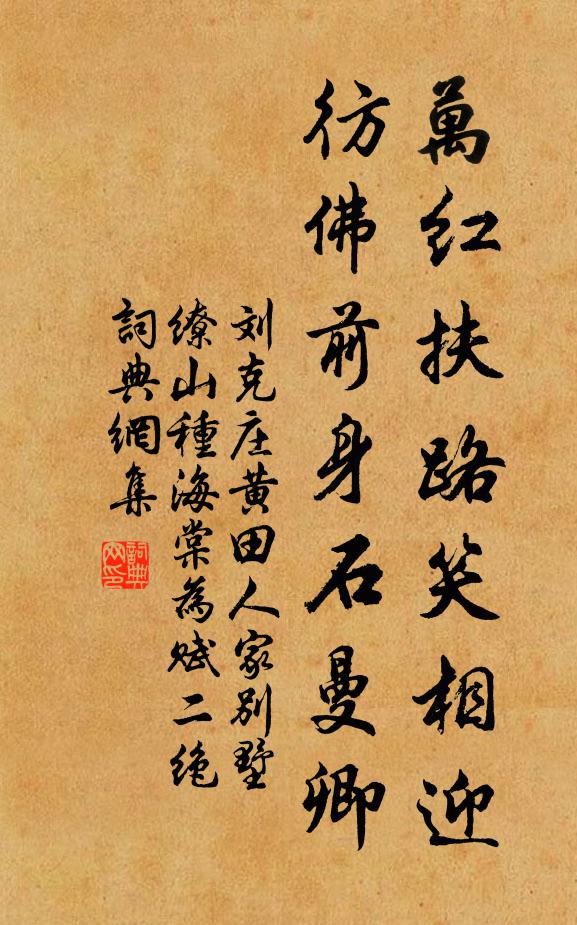 萬红扶路笑相迎
彷佛前身石曼卿
刘克庄黄田人家别墅
缭山種海棠為赋二绝
詞典網集
詞典网印